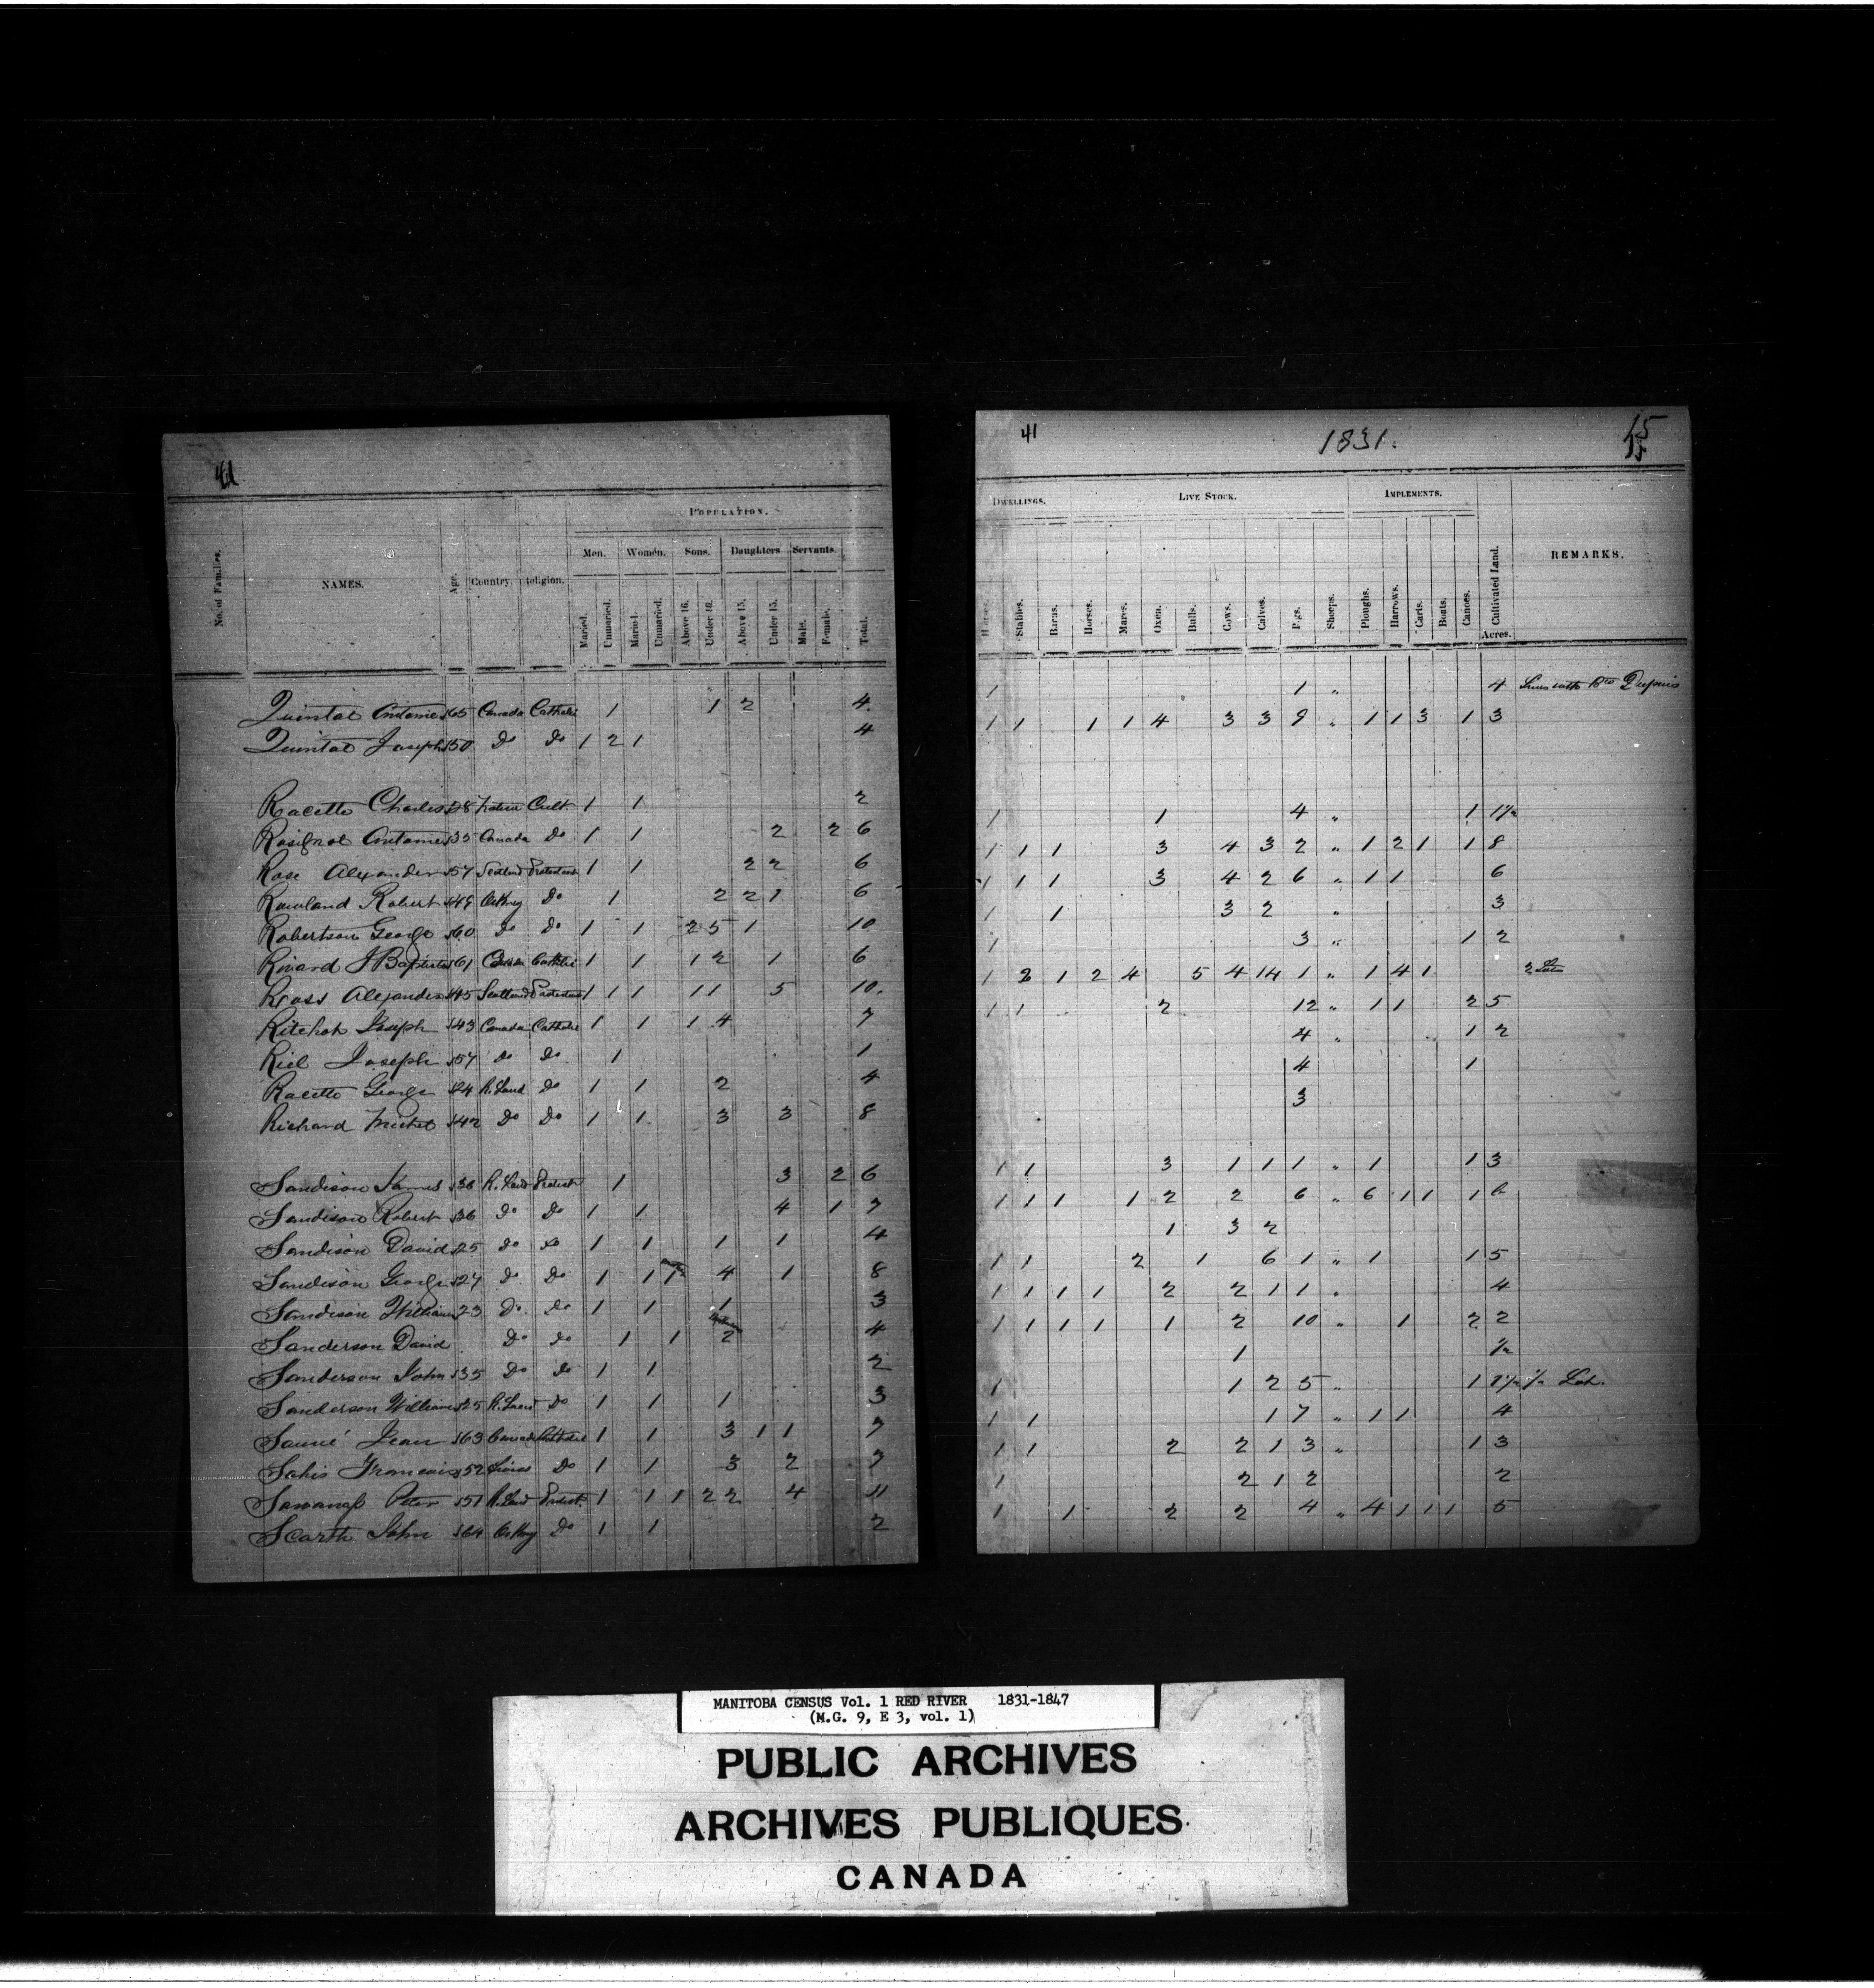 41
POPULATION.
Men. Women. Sons. Daughters Servants.
No. of Families. NAMES. Age. Country. Religion. Maried. Unmaried. Maried. Unmaried. Above 16. Under 16. Above 15. Under 15. Male. Female. Total.
Quintal Antoine 65 Canada Catholic 1 1 2 4
Quintal Joseph 50 Do Do 1 2 1 4
Racette Charles 28 Cath. 1 1 2
Antoine 35 Canada Do 1 1 2 2 6
Rose Alexander 57 Scotland Protestant 1 1 2 2 6
Rowland Robert 49 Orkney Do 1 2 2 1 6
Robertson George 60 Do Do 1 1 2 5 1 10
Rivard J Baptiste 61 Catholic 1 1 1 2 1 6
Ross Alexander 45 Scotland Protestant 1 1 1 1 1 5 10.
Ritchot Joseph 43 Canada Catholic 1 1 1 4 7
Riel Joseph 57 Do Do 1 1
Racette George 24 R. Land Do 1 1 2 4
Richard Michel 42 Do Do 1 1 3 3 8
Sandison James 38 R. Land Protest 1 3 2 6
Sandison Robert 36 Do Do 1 1 4 1 7
Sandison David 25 Do Do 1 1 1 1 4
Sandison George 27 Do Do 1 1 1 4 1 8
Sandison William 23 Do Do 1 1 1 3
Sanderson David Do Do 1 1 2 4
Sanderson John 35 Do Do 1 1 2
Sanderson William 25 R. Land Do 1 1 1 3
Jean 63 Canada Catholic 1 1 3 1 1 7
52 Do 1 1 3 2 7
Peter 51 R. Land Protest. 1 1 1 2 2 4 11
Scarth John 64 Orkney Do 1 1 2
41 1831. 15
DWELLINGS. LIVE STOCK. IMPLEMENTS.
Houses. Stables. Barns. Horses. Mares. Oxen. Bulls. Cows. Calves. Pigs. Sheeps. Ploughs. Harrows. Carts. Boats. Canoes. Cultivated Land. Acres. REMARKS.
1 1 " 4 Dupuis
1 1 1 1 4 3 3 9 " 1 1 3 1 3
1 1 4 " 1 1½
1 1 1 3 4 3 2 " 1 2 1 1 8
1 1 1 3 4 2 6 " 1 1 6
1 1 3 2 " 3
1 3 " 1 2
1 2 1 2 4 5 4 14 1 " 1 4 1 2 Lots
1 1 2 12 " 1 1 2 5
4 " 1 2
4 1
3
1 1 3 1 1 1 " 1 1 3
1 1 1 1 2 2 6 " 6 1 1 1 6
1 3 2
1 1 2 1 6 1 " 1 1 5
1 1 1 1 2 2 1 1 " 4
1 1 1 1 1 2 10 " 1 2 2
1 ½
1 1 2 5 " 1 1½ ½ Lot.
1 1 1 7 " 1 1 4
1 1 2 2 1 3 " 1 3
1 2 1 2 2
1 1 2 2 4 " 4 1 1 1 5
MANITOBA CENSUS Vol. 1 RED RIVER 1831-1847
(M.G. 9, E 3, vol. 1)
PUBLIC ARCHIVES
ARCHIVES PUBLIQUES
CANADA